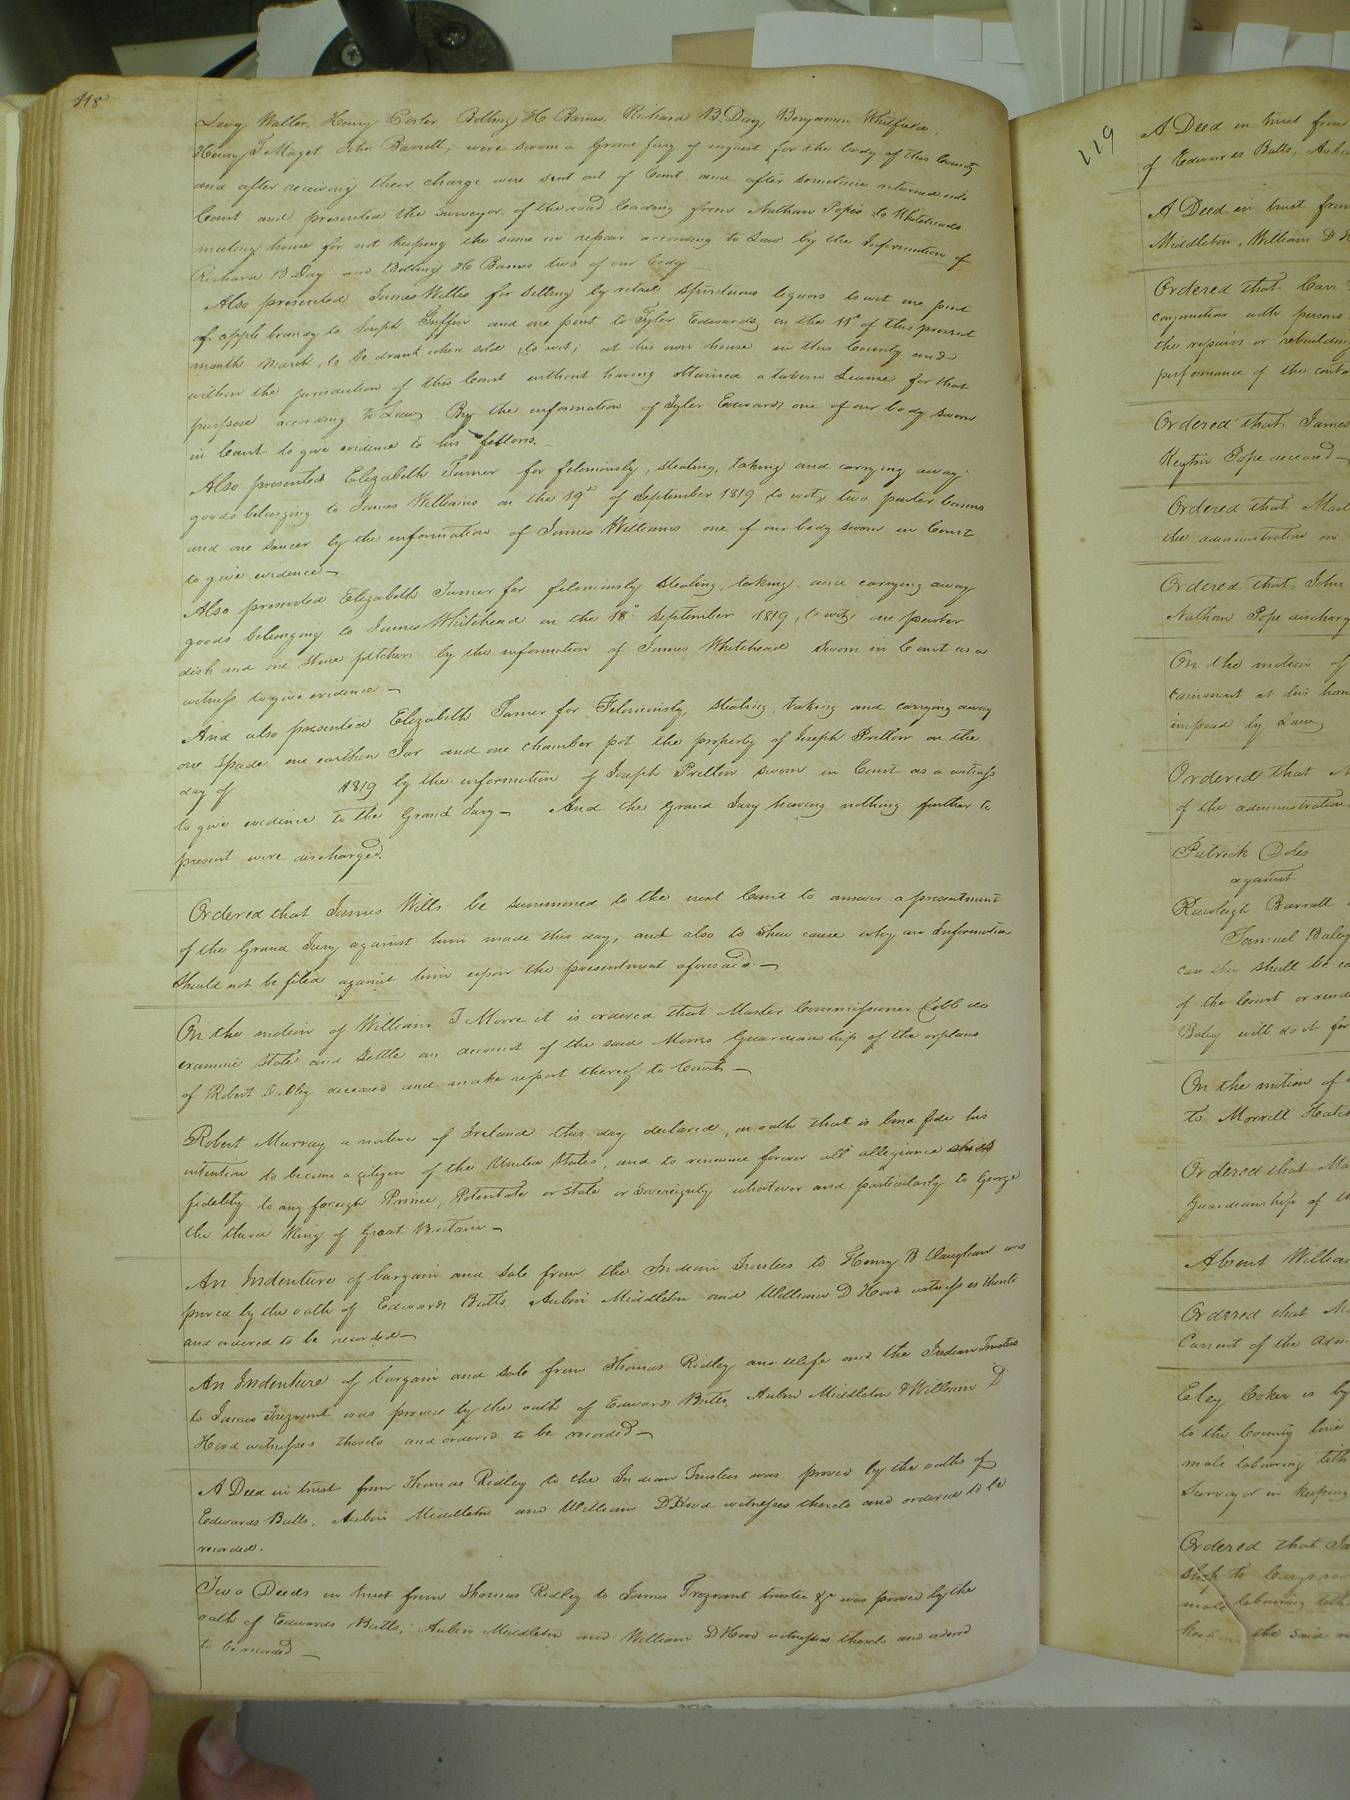 118
Levy Waller, Henry Porter Bolling H Barnes, Richard B Day, Benjamin Whitfield,
Henry T Maget John Barrett, were sworn a Grand jury of inquest for the body of this County
and after receiving their charge were sent out of Court and after sometime returned into
Court and presented the surveyor of the road leading from Nathan Popes to Whiteheads
meeting house for not keeping the same in repair according to Law by the Information of
Richard B Day and Bolling H Barnes two of our body
Also presented James Wills for selling by retail spirituous liquors to wit one pint
of apple brandy to Joseph Griffin and one pint to Tyler Edwards on the 11th of this present
month March, to be drank where sold, to wit; at his own house in this County and
within the jurisdiction of this Court without having obtained a tavern License for that
purpose according to Law By the information of Tyler Edwards one of our body sworn
in Court to give evidence to his fellows.
Also presented Elizabeth Turner for feloniously, stealing, taking and carrying away
goods belonging to James Williams on the 19th of September 1819 to wit, two pewter basons
and one saucer by the information of James Williams one of our body sworn in Court
to give evidence
Also presented Elizabeth Turner for feloniously stealing, taking, and carrying away
goods belonging to James Whitehead on the 18th September 1819, to wit, one pewter
dish and one stone pitcher by the information of James Whitehead sworn in Court as a
witness to give evidence
And also presented Elizabeth Turner for Feloniously, stealing, taking and carrying away
one spade one earthen Jar and one chamber pot the property of Joseph Pretlow on the
day of 1819 by the information of Joseph Pretlow sworn in Court as a witness
to give evidence to the Grand Jury And the Grand Jury having nothing further to
present were discharged.
Ordered that James Wills be summoned to the next Court to answer a presentment
of the Grand Jury against him made this day, and also to shew cause why an Information
should not be filed against him upon the presentment aforesaid.
On the motion of William T Moore it is ordered that Master Commissioner Cobb do
examine state and settle an account of the said Moores Guardianship of the orphans
of Robert deceased and make report thereof to Court
Robert Murray a native of Ireland this day declared, on oath that is bona fide his
intention to become a citizen of the United States, and to renounce forever all allegiance and
fidelity to any foreign Prince, Potentate or State or Sovereignty whatever and particularly to George
the third King of Great Britain
An Indenture of bargain and sale from the Indian Trustees to Henry B Vaughan was
proved by the oath of Edwards Butts Aubin Middleton and William D Hood witnesses thereto
and ordered to be recorded
An Indenture of bargain and sale from Thomas Ridley and Wife and the Indian Trustees
to James Trezvant was proved by the oath of Edwards Butts, Aubin Middleton & William D
Hood witnesses thereto and ordered to be recorded
A Deed in trust from Thomas Ridley to the Indian Trustees was proved by the oaths of
Edwards Butts, Aubin Middleton and William D Hood witnesses thereto and ordered to be
recorded.
Two Deeds in trust from Thomas Ridley to James Trezvant trustee &c was proved by the
oath of Edwards Butts, Aubin Middleton and William D Hood witnesses thereto and ordered
to be recorded
119
A Deed in trust from
of Edwards Butts, Aubin
A Deed in trust from
Middleton, William D H
Ordered that Carr
conjunction with persons
the repairs or rebuilding
performance of the contra
Ordered that James
Pope deceased
Ordered that
the administration on
Ordered that John
Nathan Pope discharg
On the motion of
tainment at his hou
imposed by Law
Ordered that
of the administration
Patrick Doles
against
Rawleigh Barratt
Samuel Baley
can they shall be co
of the Court or rend
Baley will do it for
On the motion of
to Morrill
Ordered that Ma
Guardianship of th
Absent William
Ordered that M
Current of the adm
Eley Coker is by
to the County line
male labouring tith
Surveyor in keeping
Ordered that Ja
male labouring tith
the said